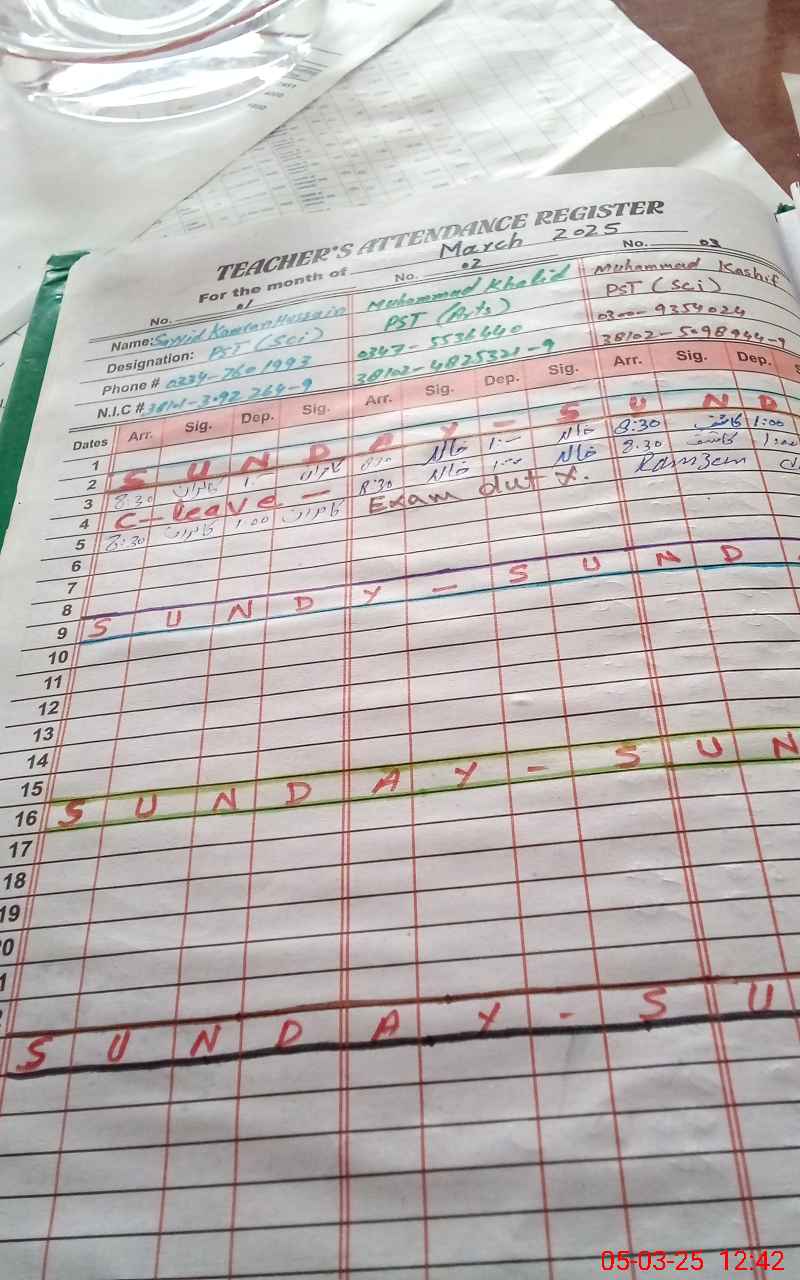 TEACHER'S ATTENDANCE REGISTER
For the month of March 2025
No. 01 No. 02 No. 03
Name: Sayyid Kamran Hussain Muhammad Khalid Muhammad Kashif
Designation: PST (Sci) PST (Arts) PST (Sci)
Phone # 0334-7601993 0347-5536440 0300-9354024
N.I.C # 38102-4825321-9 38102-5098944-9
Dates Arr. Sig. Dep. Sig. Arr. Sig. Dep. Sig. Arr. Sig. Dep.
1
2 S U N D A Y - S U N D
3 8:30 کامران 1:00 کامران 8:30 خالد 1:00 خالد 8:30 کاشف 1:00
4 C-leave - 8:30 خالد 1:00 خالد 8:30 کاشف 1:00
5 8:30 کامران 1:00 کامران Exam duty. Ramzan
6
7
8
9 S U N D Y - S U N D
10
11
12
13
14
15
16 S U N D A Y - S U N
17
18
19
S U N D A Y - S U
05-03-25 12:42